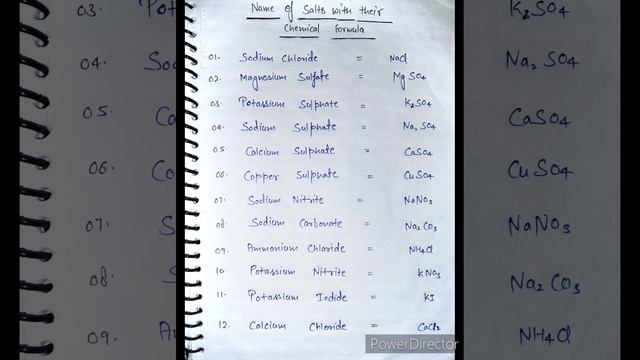 Name of Salts with their
Chemical Formula
01. Sodium Chloride = NaCl
02. Magnesium Sulfate = MgSO4
03. Potassium Sulphate = K2SO4
04. Sodium Sulphate = Na2SO4
05. Calcium Sulphate = CaSO4
06. Copper Sulphate = CuSO4
07. Sodium Nitrite = NaNO3
08. Sodium Carbonate = Na2CO3
09. Ammonium Chloride = NH4Cl
10. Potassium Nitrite = KNO3
11. Potassium Iodide = KI
12. Calcium Chloride = CaCl2
PowerDirector
03. Pot
04. Soo
05. Ca
06. Co
07. S
08.
09. A
K2SO4
Na2SO4
CaSO4
CuSO4
NaNO3
Na2CO3
NH4Cl